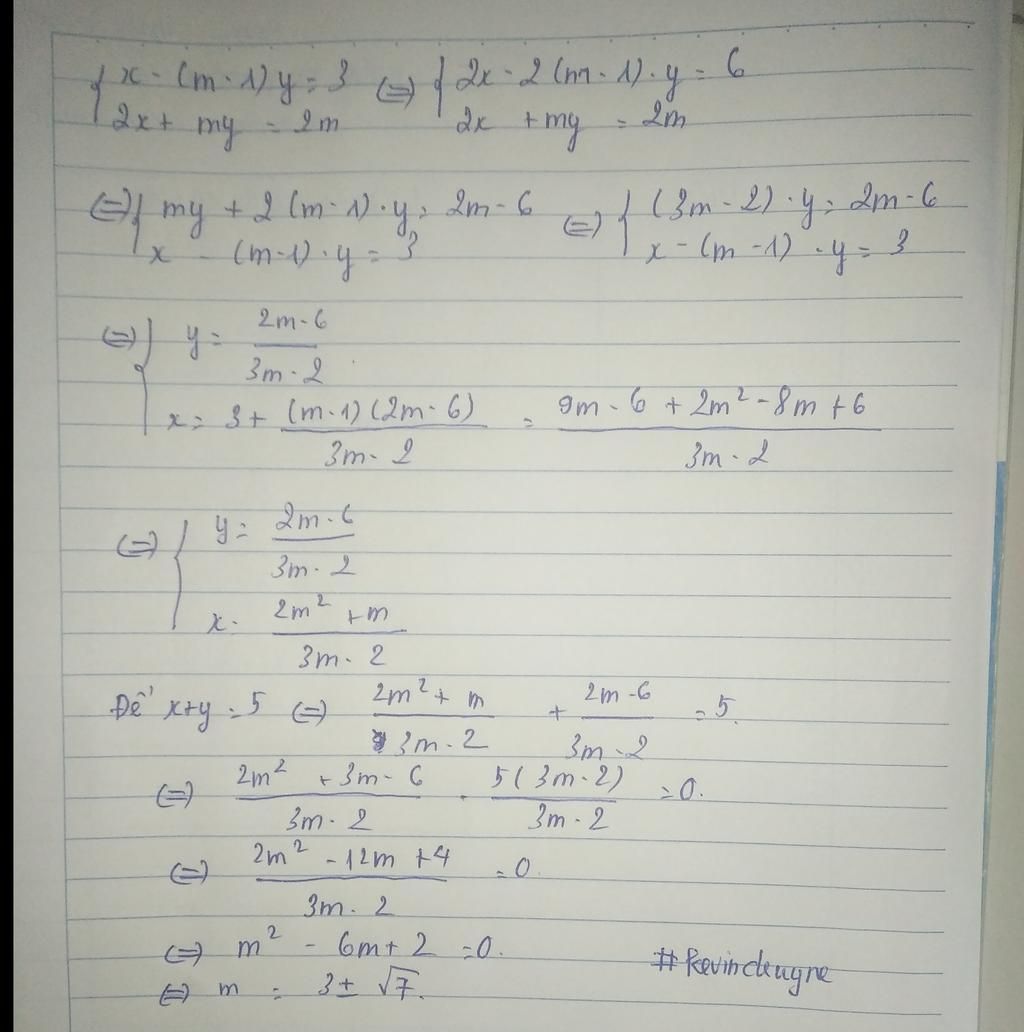 { x - (m - 1) y = 3 (=) { 2x - 2 (m - 1) . y = 6
2x + my = 2m 2x + my = 2m
(=) { my + 2 (m - 1) . y = 2m - 6 (=) { (3m - 2) . y = 2m - 6
x - (m - 1) . y = 3 x - (m - 1) . y = 3
(=) { y = (2m - 6)/(3m - 2)
x = 3 + (m - 1)(2m - 6)/(3m - 2) = (9m - 6 + 2m² - 8m + 6)/(3m - 2)
(=) { y = (2m - 6)/(3m - 2)
x = (2m² + m)/(3m - 2)
Để x+y = 5 (=) (2m² + m)/(3m - 2) + (2m - 6)/(3m - 2) = 5.
(=) (2m² + 3m - 6)/(3m - 2) - 5(3m - 2)/(3m - 2) = 0.
(=) (2m² - 12m + 4)/(3m - 2) = 0.
(=) m² - 6m + 2 = 0. #Kevindeugne
(=) m = 3 ± √7.